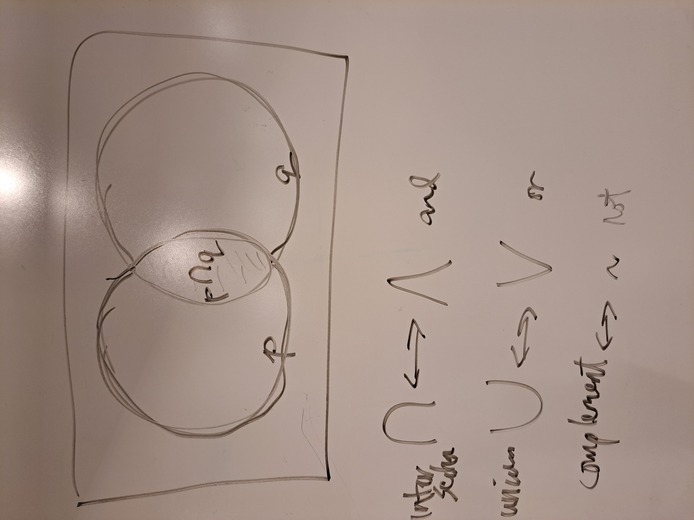 p∩q
p
q
inter ∩ ↔ ∧ and
section
union ∪ ↔ ∨ or
complement ↔ ~ not